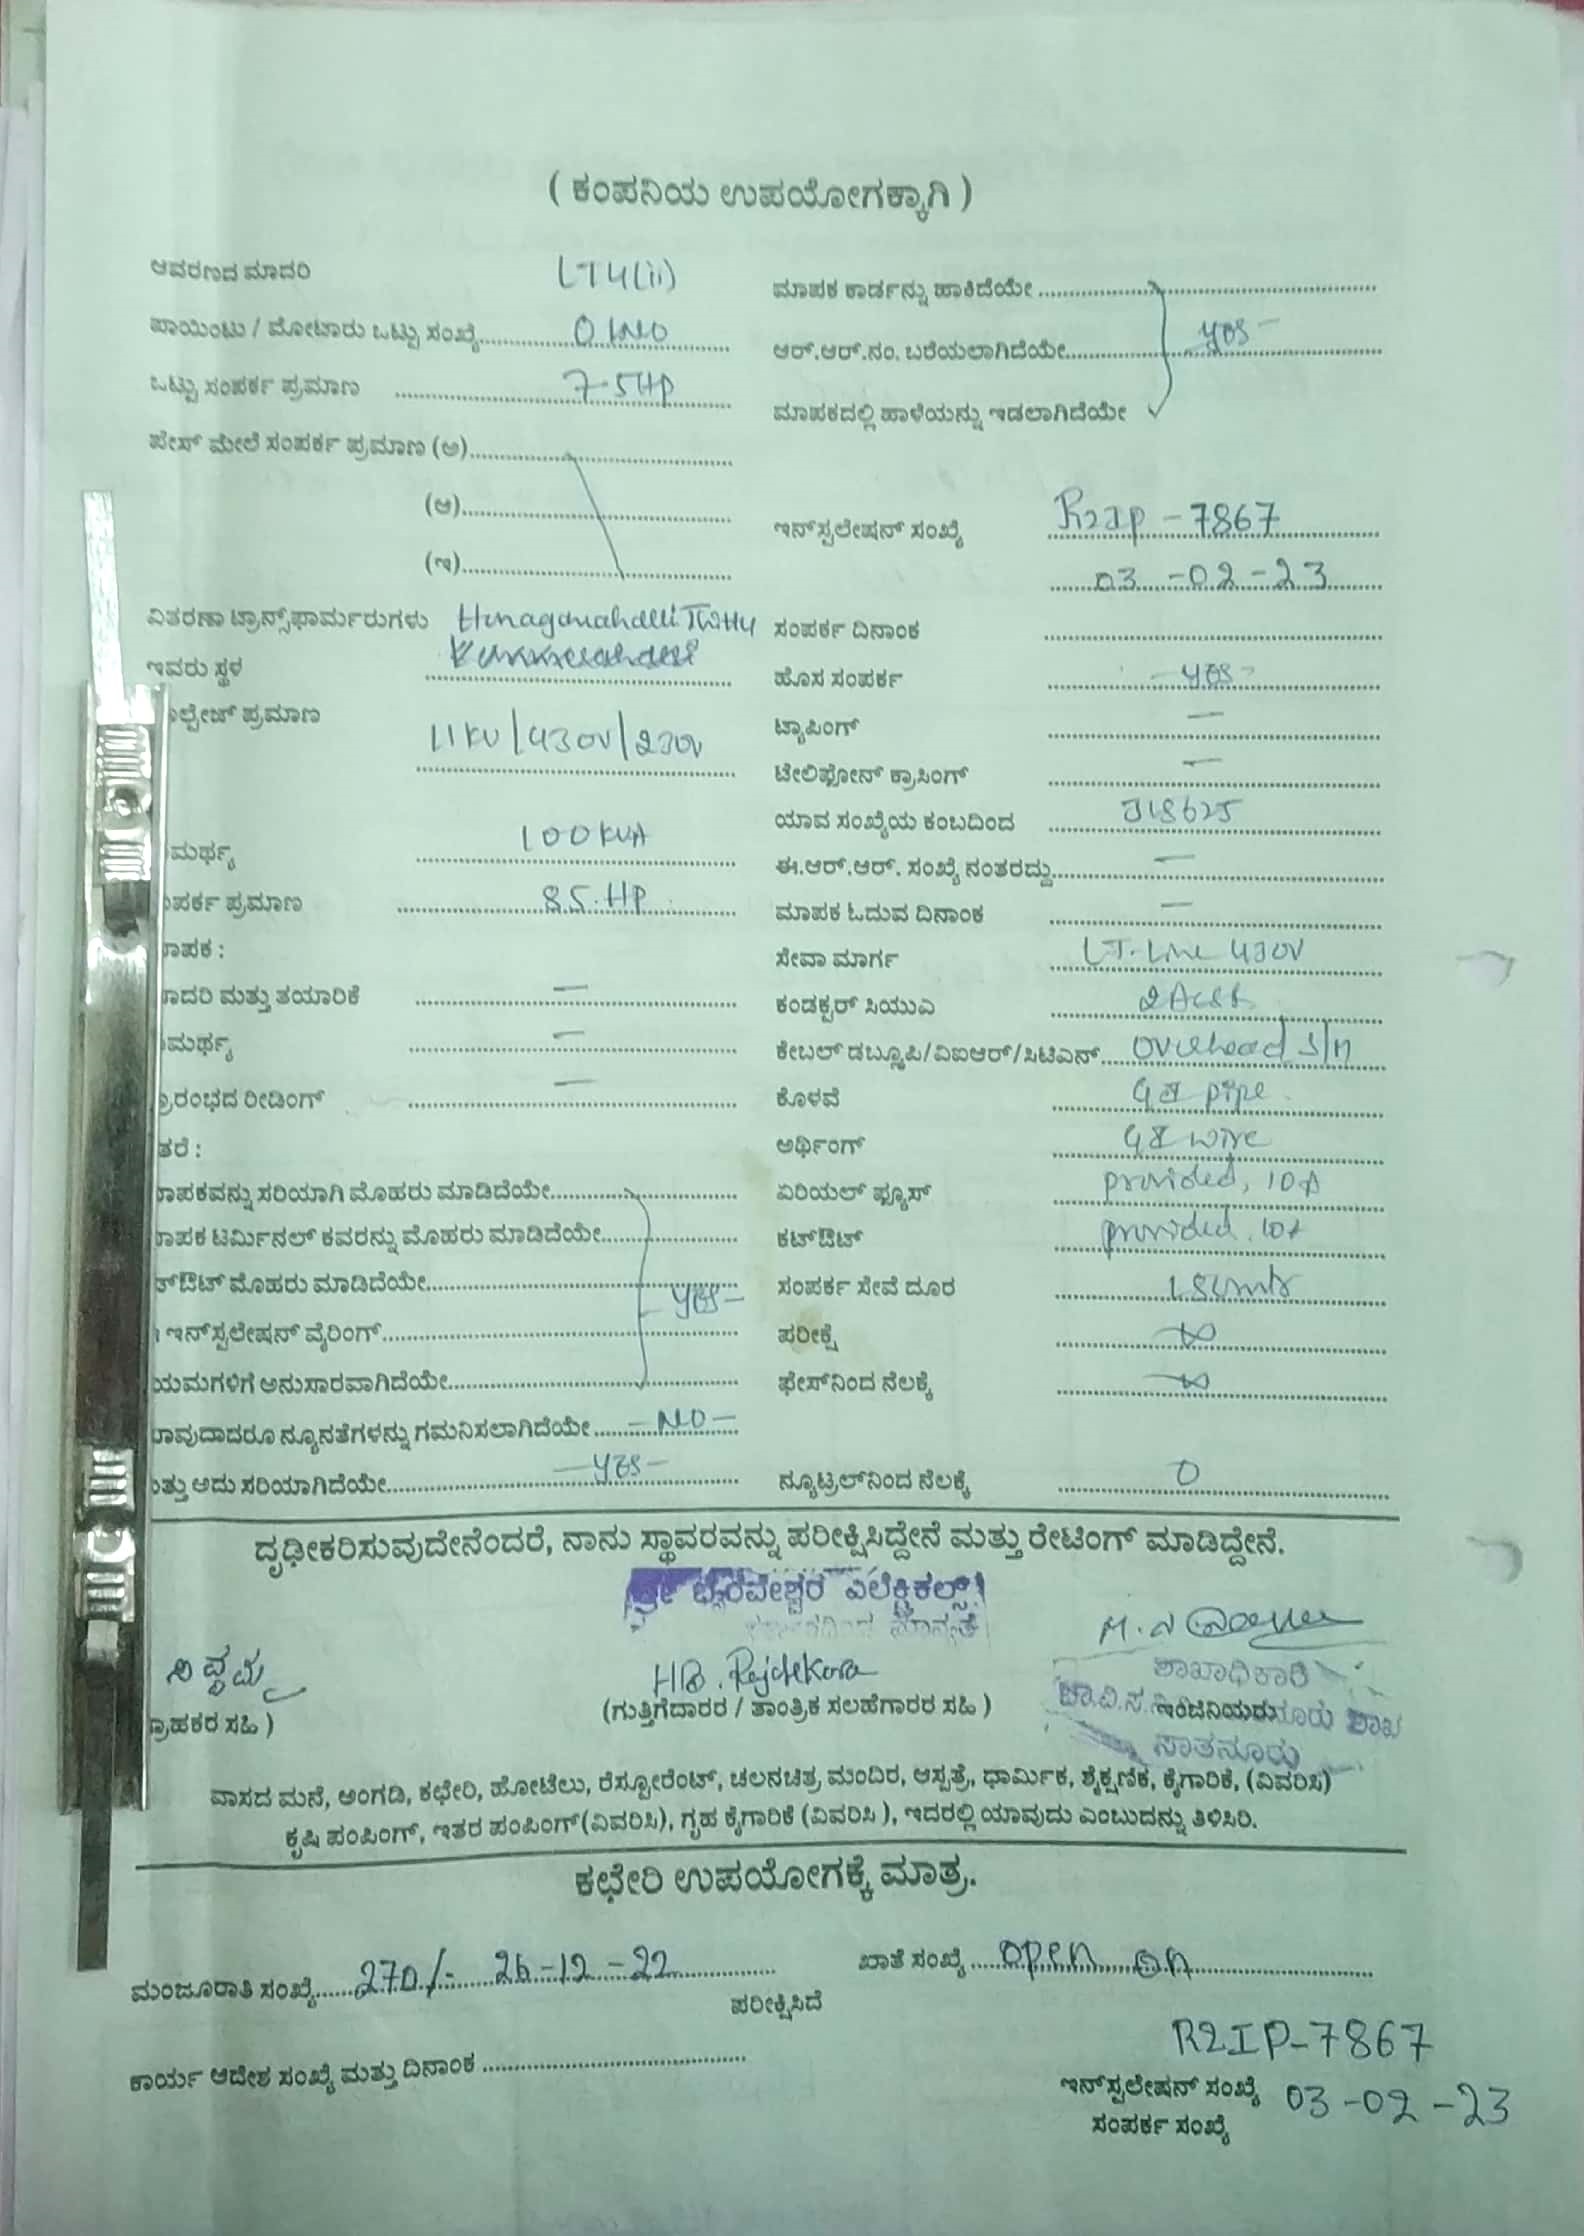 ( ಕಂಪನಿಯ ಉಪಯೋಗಕ್ಕಾಗಿ )
ಆವರಣದ ಮಾದರಿ LT4(ii)
ಪಾಯಿಂಟು / ಮೋಟಾರು ಒಟ್ಟು ಸಂಖ್ಯೆ 01No
ಒಟ್ಟು ಸಂಪರ್ಕ ಪ್ರಮಾಣ 7-5HP
ಪೇಸ್ ಮೇಲೆ ಸಂಪರ್ಕ ಪ್ರಮಾಣ (ಅ)
(ಆ)
(ಇ)
ವಿತರಣಾ ಟ್ರಾನ್ಸ್‌ಫಾರ್ಮರುಗಳು
ಇವರು ಸ್ಥಳ
ಲ್ಟೇಜ್ ಪ್ರಮಾಣ 11KV/430V/230V
ಮರ್ಥ್ಯ 100KVA
ಪರ್ಕ ಪ್ರಮಾಣ 85.HP
ಾಪಕ :
ಾದರಿ ಮತ್ತು ತಯಾರಿಕೆ —
ಮರ್ಥ್ಯ —
್ರಾರಂಭದ ರೀಡಿಂಗ್ —
ತರೆ :
ಾಪಕವನ್ನು ಸರಿಯಾಗಿ ಮೊಹರು ಮಾಡಿದೆಯೇ
ಾಪಕ ಟರ್ಮಿನಲ್ ಕವರನ್ನು ಮೊಹರು ಮಾಡಿದೆಯೇ
ಟ್‌ಔಟ್ ಮೊಹರು ಮಾಡಿದೆಯೇ — yes —
ಇನ್‌ಸ್ಟಲೇಷನ್ ವೈರಿಂಗ್
ಯಮಗಳಿಗೆ ಅನುಸಾರವಾಗಿದೆಯೇ
ಾವುದಾದರೂ ನ್ಯೂನತೆಗಳನ್ನು ಗಮನಿಸಲಾಗಿದೆಯೇ — NO —
ತ್ತು ಅದು ಸರಿಯಾಗಿದೆಯೇ — yes —
ಮಾಪಕ ಕಾರ್ಡನ್ನು ಹಾಕಿದೆಯೇ
ಆರ್.ಆರ್.ನಂ. ಬರೆಯಲಾಗಿದೆಯೇ yes —
ಮಾಪಕದಲ್ಲಿ ಹಾಳೆಯನ್ನು ಇಡಲಾಗಿದೆಯೇ
ಇನ್‌ಸ್ಟಲೇಷನ್ ಸಂಖ್ಯೆ R2IP - 7867
03 - 02 - 23
ಸಂಪರ್ಕ ದಿನಾಂಕ
ಹೊಸ ಸಂಪರ್ಕ — yes —
ಟ್ಯಾಪಿಂಗ್ —
ಟೇಲಿಫೋನ್ ಕ್ರಾಸಿಂಗ್ —
ಯಾವ ಸಂಖ್ಯೆಯ ಕಂಬದಿಂದ
ಈ.ಆರ್.ಆರ್. ಸಂಖ್ಯೆ ನಂತರದ್ದು —
ಮಾಪಕ ಓದುವ ದಿನಾಂಕ —
ಸೇವಾ ಮಾರ್ಗ LT-Line 430V
ಕಂಡಕ್ಟರ್ ಸಿಯುಎ
ಕೇಬಲ್ ಡಬ್ಲ್ಯೂಪಿ/ವಿಐಆರ್/ಸಿಟಿಎಸ್ Overhead S/M
ಕೊಳವೆ GI pipe
ಅರ್ಥಿಂಗ್ GI wire
ಏರಿಯಲ್ ಫ್ಯೂಸ್ provided, 10A
ಕಟ್‌ಔಟ್ provided, 10A
ಸಂಪರ್ಕ ಸೇವೆ ದೂರ
ಪರೀಕ್ಷೆ ∞
ಫೇಸ್‌ನಿಂದ ನೆಲಕ್ಕೆ ∞
ನ್ಯೂಟ್ರಲ್‌ನಿಂದ ನೆಲಕ್ಕೆ 0
ದೃಢೀಕರಿಸುವುದೇನೆಂದರೆ, ನಾನು ಸ್ಥಾವರವನ್ನು ಪರೀಕ್ಷಿಸಿದ್ದೇನೆ ಮತ್ತು ರೇಟಿಂಗ್ ಮಾಡಿದ್ದೇನೆ.
ಶ್ರೀ ಭೈರವೇಶ್ವರ ಎಲೆಕ್ಟ್ರಿಕಲ್ಸ್
ಮಾನ್ಯತೆ
ಗ್ರಾಹಕರ ಸಹಿ )
(ಗುತ್ತಿಗೆದಾರರ / ತಾಂತ್ರಿಕ ಸಲಹೆಗಾರರ ಸಹಿ )
ಶಾಖಾಧಿಕಾರಿ
ಇಂಜಿನಿಯರು
ಚಾ.ವಿ.ಸ. ಶಾಖೆ
ಸಾತನೂರು
ವಾಸದ ಮನೆ, ಅಂಗಡಿ, ಕಛೇರಿ, ಹೋಟೆಲು, ರೆಸ್ಟೋರೆಂಟ್, ಚಲನಚಿತ್ರ ಮಂದಿರ, ಆಸ್ಪತ್ರೆ, ಧಾರ್ಮಿಕ, ಶೈಕ್ಷಣಿಕ, ಕೈಗಾರಿಕೆ, (ವಿವರಿಸಿ)
ಕೃಷಿ ಪಂಪಿಂಗ್, ಇತರ ಪಂಪಿಂಗ್(ವಿವರಿಸಿ), ಗೃಹ ಕೈಗಾರಿಕೆ (ವಿವರಿಸಿ ), ಇದರಲ್ಲಿ ಯಾವುದು ಎಂಬುದನ್ನು ತಿಳಿಸಿರಿ.
ಕಛೇರಿ ಉಪಯೋಗಕ್ಕೆ ಮಾತ್ರ.
ಮಂಜೂರಾತಿ ಸಂಖ್ಯೆ 270/- 26-12-22
ಖಾತೆ ಸಂಖ್ಯೆ open on
ಪರೀಕ್ಷಿಸಿದೆ
R2IP-7867
ಕಾರ್ಯ ಆದೇಶ ಸಂಖ್ಯೆ ಮತ್ತು ದಿನಾಂಕ
ಇನ್‌ಸ್ಟಲೇಷನ್ ಸಂಖ್ಯೆ 03-02-23
ಸಂಪರ್ಕ ಸಂಖ್ಯೆ